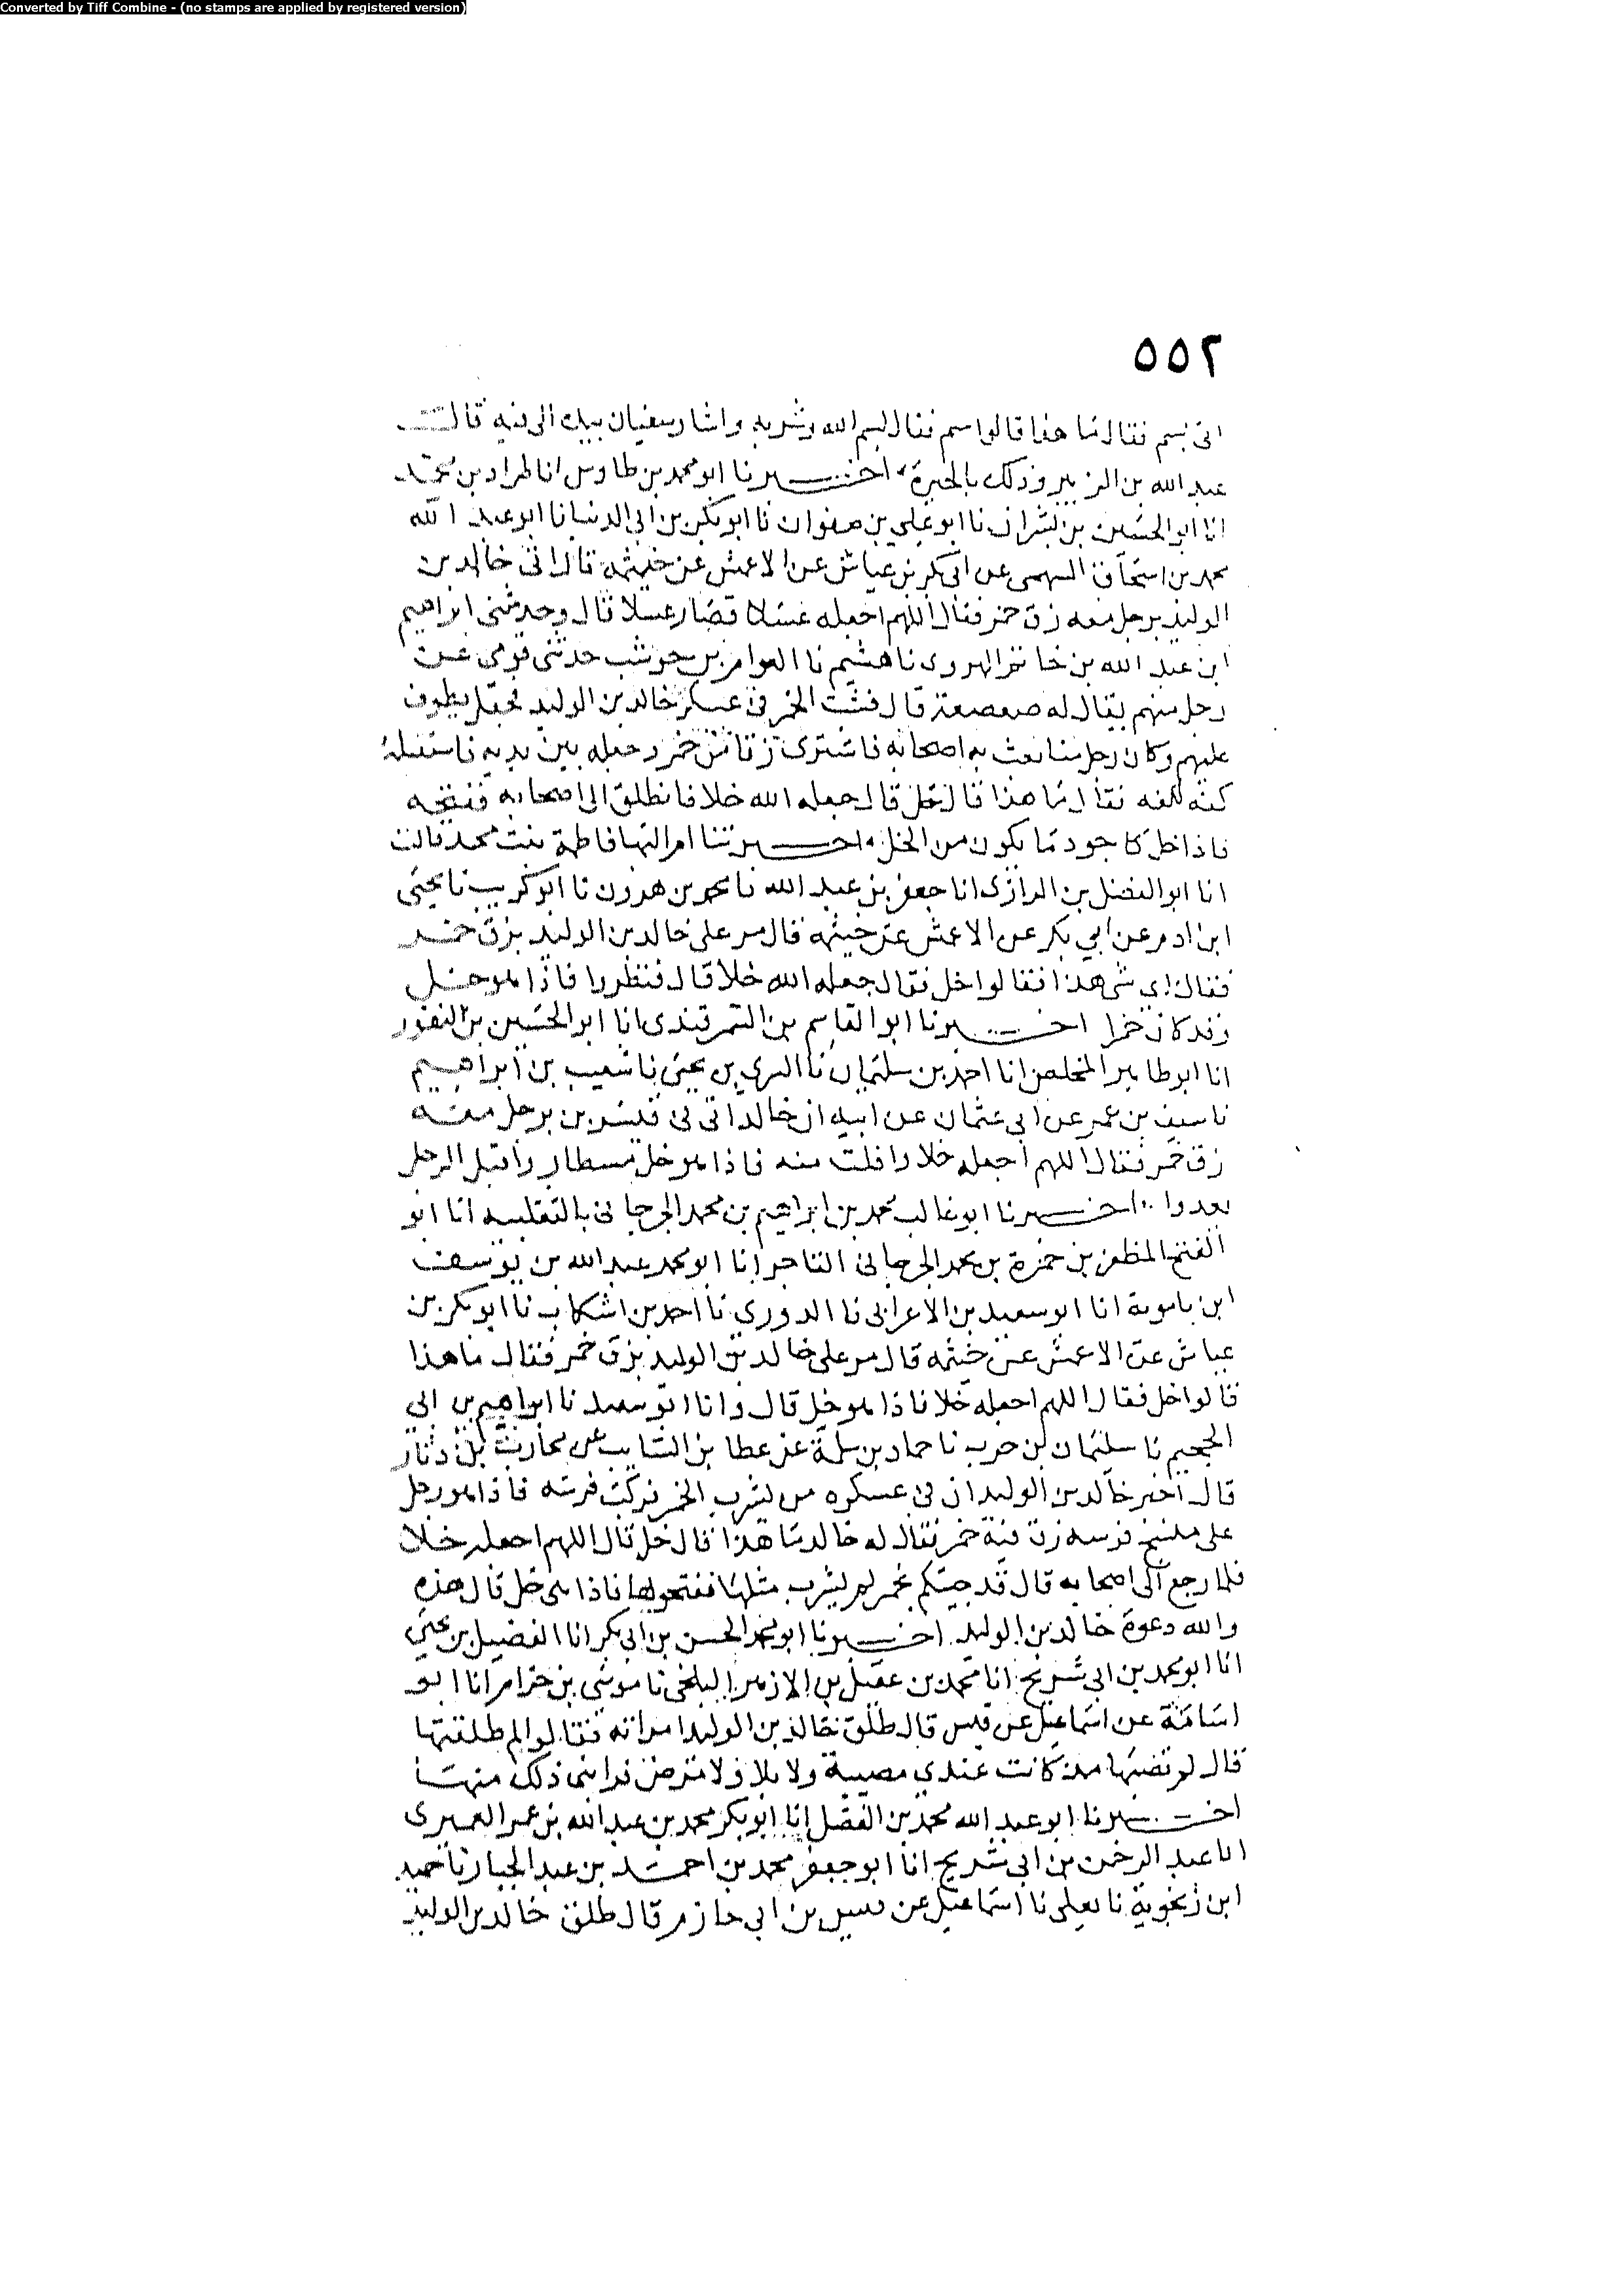 Converted by Tiff Combine - (no stamps are applied by registered version)
٥٥٢
اتى بسم فقال ما هذا قالوا سم فقال بسم الله وشربه واشار سفيان بيده الى فيه قالت
عبد الله بن الزبير وذلك بالحيرة اخبرنا ابو محمد بن طاوس انا طراد بن محمد
انا ابو الحسين بن بشران نا ابو علي بن صفوان نا ابو بكر بن ابي الدنيا نا ابو عبد الله
محمد بن اسحاق السهمى عن ابى بكر بن عياش عن الاعمش عن خيثمه قال اتى خالد بن
الوليد برجل معه زق خمر فقال اللهم اجعله عسلا فصار عسلا قال وحدثنى ابراهيم
ابن عبد الله بن حاتم الهروى نا هشيم نا العوام بن حوشب حدثنى قومى عن
رجل منهم يقال له صعصعة قال فشت الخمر فى عسكر خالد بن الوليد فجعل يطوف
عليهم وكان رجل منا بعث به اصحابه فاشترى زقا من خمر وجعله بين يديه فاستقبله
كفه لكفه فقال ما هذا قال خل قال جعله الله خلا فانطلق الى اصحابه ففتحه
فاذا خل كاجود ما يكون من الخل اخبرتنا ام البها فاطمة بنت محمد قالت
انا ابو الفضل بن الرازى انا جعفر بن عبد الله نا محمد بن هرون نا ابو كريب نا يحيى
ابن ادم عن ابي بكر عن الاعمش عن خيثمه قال مر على خالد بن الوليد بزق خمر
فقال اي شى هذا فقالوا خل فقال جعله الله خلا قال فنظروا فاذا هو خل
وقد كان خمرا اخبرنا ابو القاسم بن السمرقندى انا ابو الحسين بن النقور
انا ابو طاهر المخلص انا احمد بن سليمان نا السري بن يحيى نا شعيب بن ابراهيم
نا سيف بن عمر عن ابى عثمان عن ابيه ان خالدا اتى فى قنسرين برجل معه
زق خمر فقال اللهم اجعله خلا وافلت منه فاذا هو خل مسطار واقبل الرجل
بعدوا اخبرنا ابو غالب محمد بن ابراهيم بن محمد الجرجانى بالثعلبيه انا ابو
الفتح المظفر بن حمزة بن محمد الجرجانى التاجر انا ابو محمد عبد الله بن يوسف
ابن بامويه انا ابو سعيد بن الاعرابى نا الدوري نا احمد بن اشكاب نا ابو بكر بن
عياش عن الاعمش عن خيثمه قال مر على خالد بن الوليد بزق خمر فقال ما هذا
قالوا خل فقال اللهم اجعله خلا فاذا هو خل قال وانا ابو سعيد نا ابراهيم بن ابي
الجحيم نا سليمان بن حرب نا حماد بن سلمة عن عطا بن السايب عن محارب بن دثار
قال اخبر خالد بن الوليد ان فى عسكره من يشرب الخمر فركب فرسه فاذا هو رجل
على منسج فرسه زق فيه خمر فقال له خالد ما هذا قال خل قال اللهم اجعله خلا
فلما رجع الى اصحابه قال قد جيتكم بخمر لم يشرب مثلها ففتحوها فاذا هى خل قال هذه
والله دعوة خالد بن الوليد اخبرنا ابو محمد الحسن بن ابى بكر انا الفضيل بن يحيى
انا ابو محمد بن ابى شريح انا محمد بن عقيل بن الازهر البلخى نا موسى بن حزام انا ابو
اسامة عن اسماعيل عن قيس قال طلق خالد بن الوليد امراته فقالوا لم طلقتها
قال لم تصبها مذ كانت عندي مصيبة ولا بلا ولا مرض فرابنى ذلك منها
اخبرنا ابو عبد الله محمد بن الفضل انا ابو بكر محمد بن عبد الله بن عمر العمرى
انا عبد الرحمن بن ابى شريح انا ابو جعفر محمد بن احمد بن عبد الجبار نا حميد
ابن زنجويه نا يعلى نا اسماعيل عن قيس بن ابى حازم قال طلق خالد بن الوليد